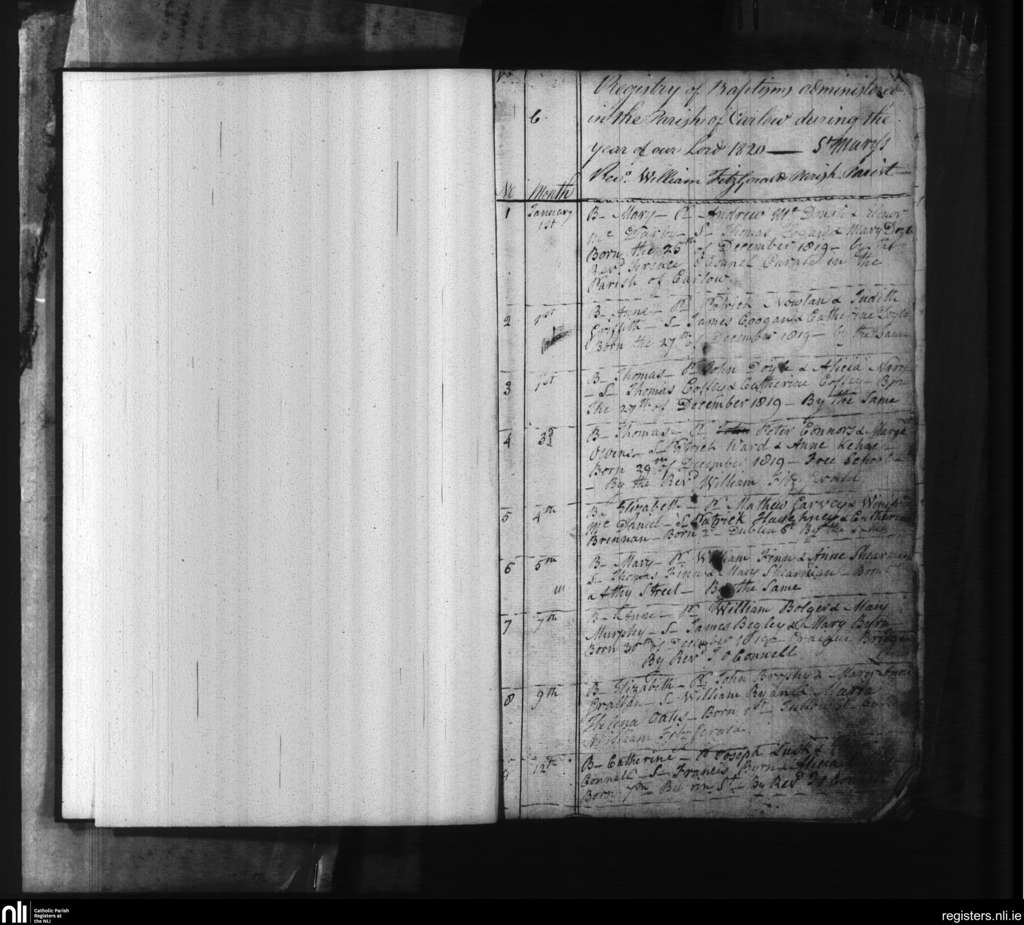 Registry of Baptisms administered
6. in the Parish of Carlow during the
year of our Lord 1820 — St Mary's
Revd. William Fitzgerald Parish Parist
No Month
1 January 1st B— Mary— P— Andrew Mc &
Mc S— Thomas & Mary Doyle
Born the 25th of December 1819— by the
Revd Terence O'Connel Curate in the
Parish of Carlow
2 1st B— Anne— P— Patrick Nowlan & Judith
Griffith— S— James Coogan & Catherine
Born the 27th of December 1819— by the Same
3 1st B— Thomas— P— John Doyle & Alicia
— S— Thomas Coffey & Catherine Coffey— Born
the 27th of December 1819— By the Same
4 3d B— Thomas— P— John Peter Connors & Margt
Owens— S— Patrick Ward & Anne Kehoe
Born 29th of December 1819— Free School—
— By the Revd William Fitzgerald
5 4th B— Elizabeth— P— Mathew Garvey &
Mc Daniel— S— Patrick & Catherine
Brennan— Born 2d— Dublin St By the Same
6 5th B— Mary— P— William Finn & Anne Shearman
S— Thomas Finn & Mary Shearman— Born
Athy Street— By the Same
7 7th B— Anne— P— William Bolger & Mary
Murphy— S— James Begley & Mary Byrn
Born 30th of December 1819— Graigue Bridge
By Revd T O Connell
8 9th B— Elizabeth— P— John Brophy & Mary Anne
S— William Ryan & Maria
Helena Oates— Born 1st— Tullow St— by
William Fitzgerald
9 12th B— Catherine— P— Joseph Lusk &
Connell— S— Francis Byrn & Alicia
Born 7th— St— By Revd T O
nli
Catholic Parish
Registers at
the NLI
registers.nli.ie